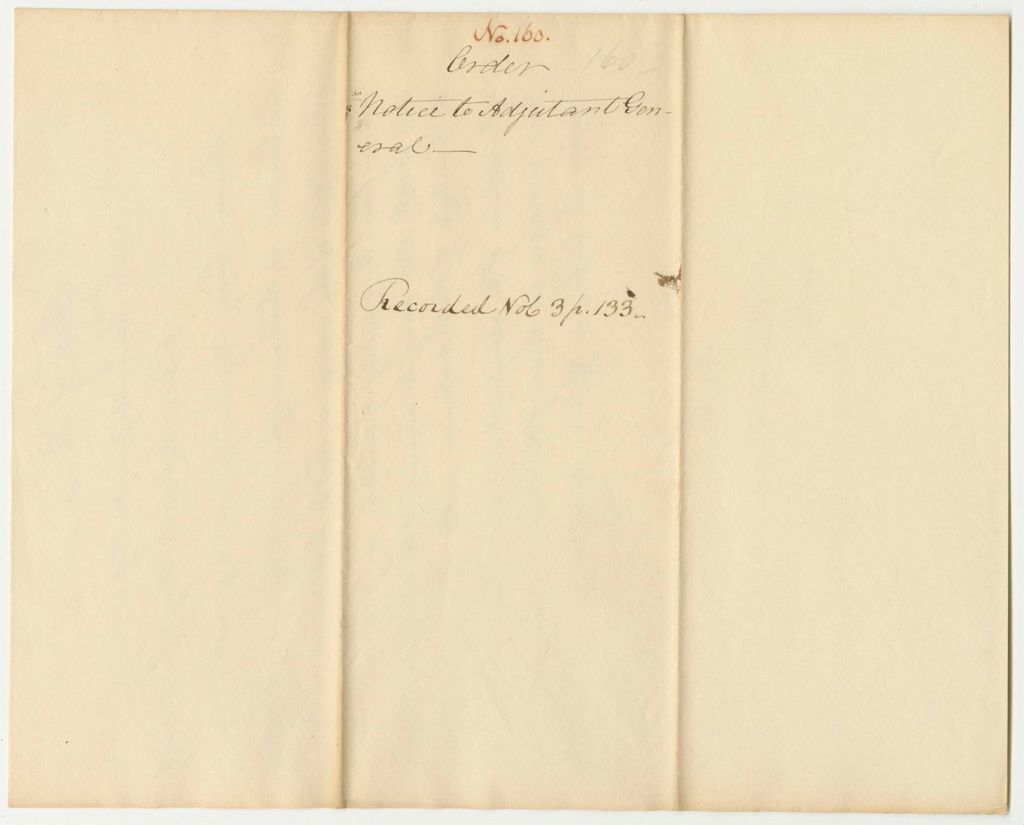 No. 160.
Order 160
Notice to Adjutant Gen-
eral.
Recorded Vol 3 p. 133